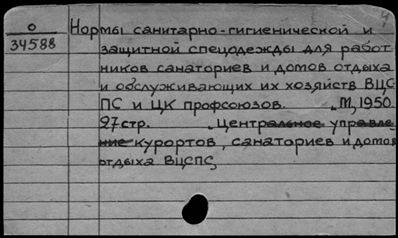 4
О
34588
Нормы санитарно-гигиенической и
защитной спецодежды для работ
ников санаториев и домов отдыха
и обслуживающих их хозяйств ВЦС
ПС и ЦК профсоюзов. „М, 1950.
27 стр. „Центральное управле
ние курортов, санаториев и домов
отдыха ВЦСПС„